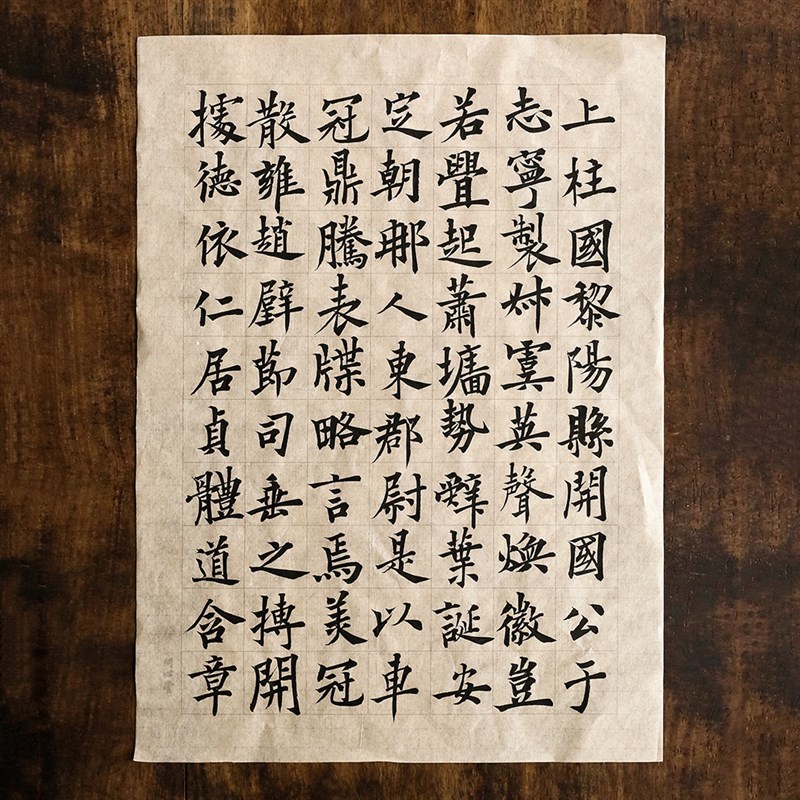 上柱國黎陽縣開國公于
志寧製英聲煥徽豈
若起蕭墻勢葉誕安
定朝那人東郡尉是以車
冠鼎騰表牒略言焉美冠
散雍趙璧節司垂之搏開
據德依仁居貞體道含章